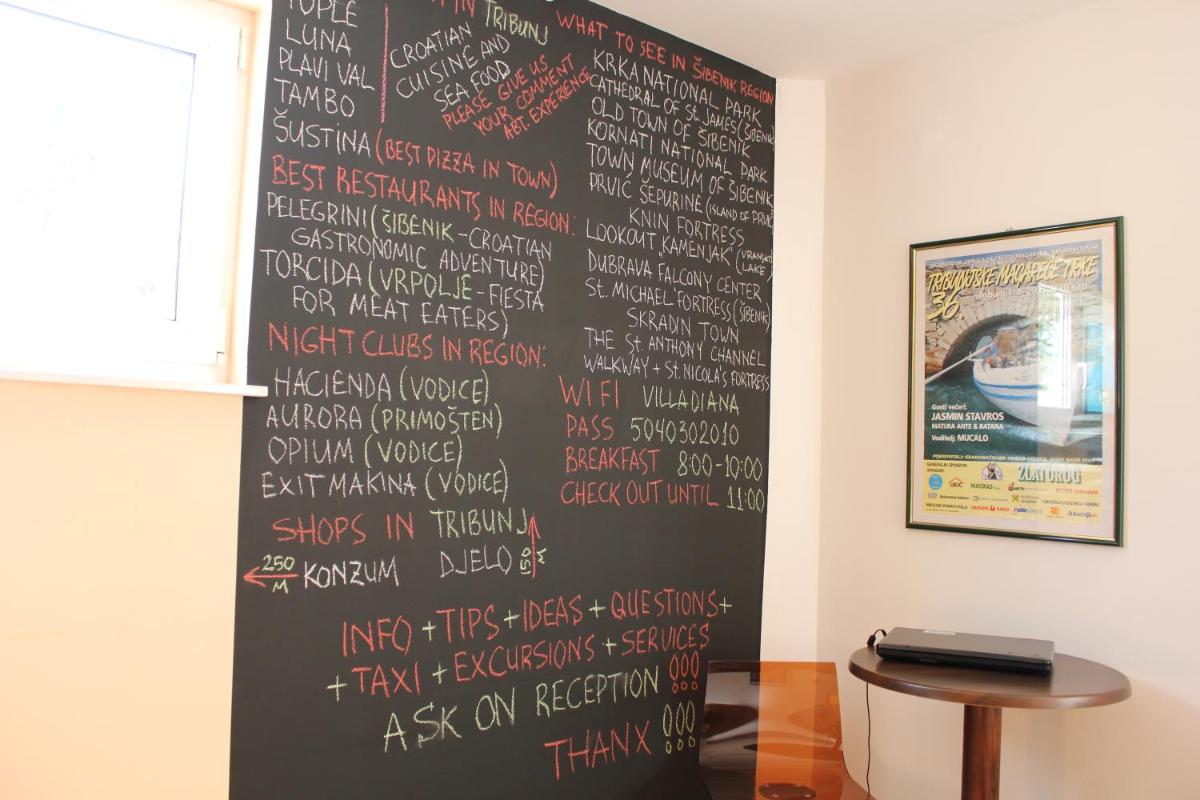 TOPLE
LUNA
PLAVI VAL
TAMBO
ŠUSTINA (BEST PIZZA IN TOWN)
IN TRIBUNJ
CROATIAN
CUISINE AND
SEA FOOD
PLEASE GIVE US
YOUR COMMENT
ABT. EXPERIENCE
BEST RESTAURANTS IN REGION:
PELEGRINI (ŠIBENIK - CROATIAN
GASTRONOMIC ADVENTURE)
TORCIDA (VRPOLJE - FIESTA
FOR MEAT EATERS)
NIGHT CLUBS IN REGION:
HACIENDA (VODICE)
AURORA (PRIMOŠTEN)
OPIUM (VODICE)
EXIT MAKINA (VODICE)
SHOPS IN TRIBUNJ
250 M KONZUM DJELO 150 M
WHAT TO SEE IN ŠIBENIK REGION
KRKA NATIONAL PARK
CATHEDRAL OF St. JAMES (ŠIBENIK
OLD TOWN OF ŠIBENIK
KORNATI NATIONAL PARK
TOWN MUSEUM OF ŠIBENIK
PRVIĆ ŠEPURINE (ISLAND OF PRVIĆ
KNIN FORTRESS
LOOKOUT "KAMENJAK" (VRANSKO LAKE)
DUBRAVA FALCONY CENTER
St. MICHAEL FORTRESS (ŠIBENIK)
SKRADIN TOWN
THE St. ANTHONY CHANNEL
WALKWAY + St. NICOLA'S FORTRESS
WIFI VILLADIANA
PASS 5040302010
BREAKFAST 8:00-10:00
CHECK OUT UNTIL 11:00
INFO + TIPS + IDEAS + QUESTIONS +
+ TAXI + EXCURSIONS + SERVICES
ASK ON RECEPTION !!!
THANX !!!
TRIBUNJSKE MAGAREĆE TRKE
36.
Tribunj 1. 8.
Gosti večeri:
JASMIN STAVROS
MATURA ANTE & BATANA
Voditelj: MUCALO
ZLATOROG